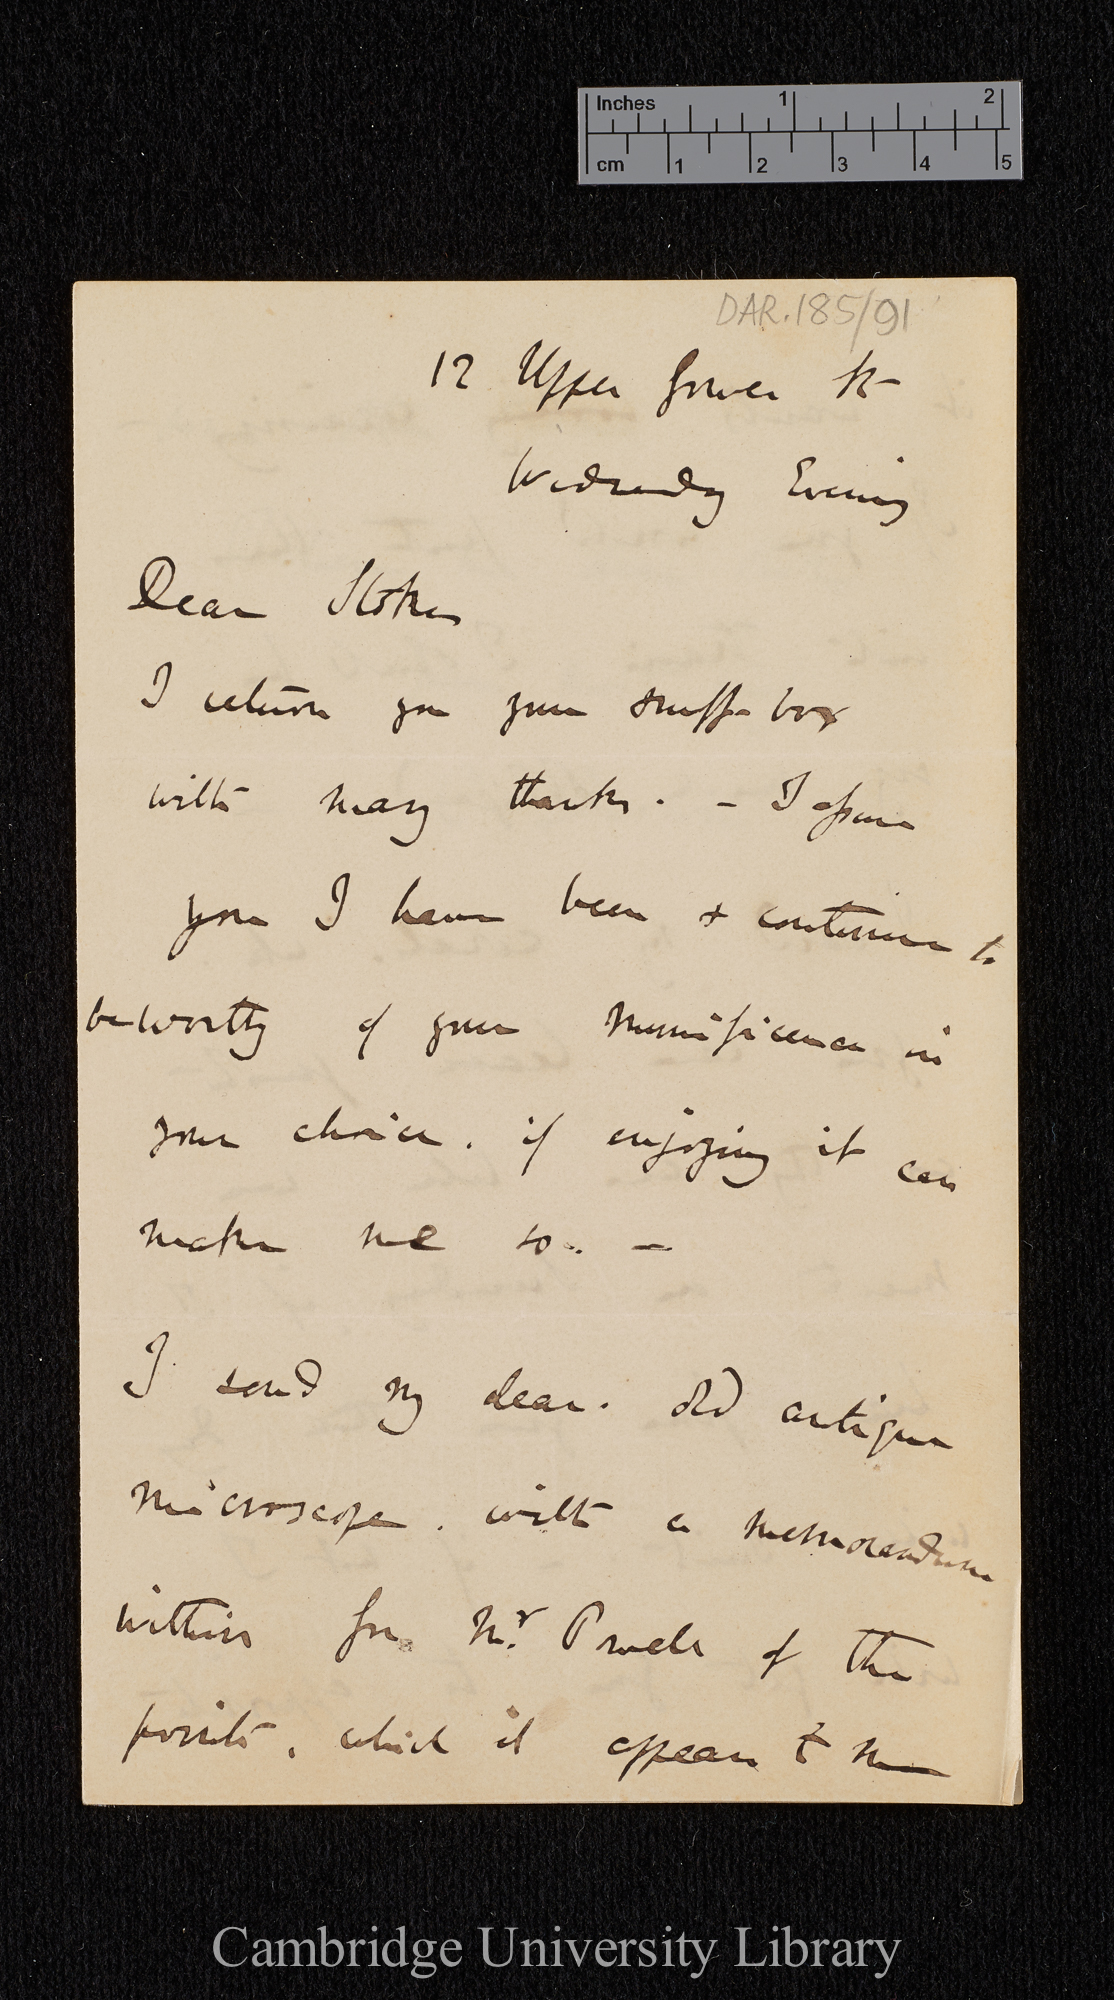 Inches 1 2
cm 1 2 3 4 5
DAR.185/91
12 Upper Gower St
Wednesday Evening
Dear Stokes
I return you your snuff-box
with many thanks. – I assure
you I have been & continue to
be worthy of your munificence in
your choice. if enjoying it can
make me so. –
I send my dear. old antique
microscope. with a memorandum
within for Mr. Powell of the
points, which it appears to me
Cambridge University Library